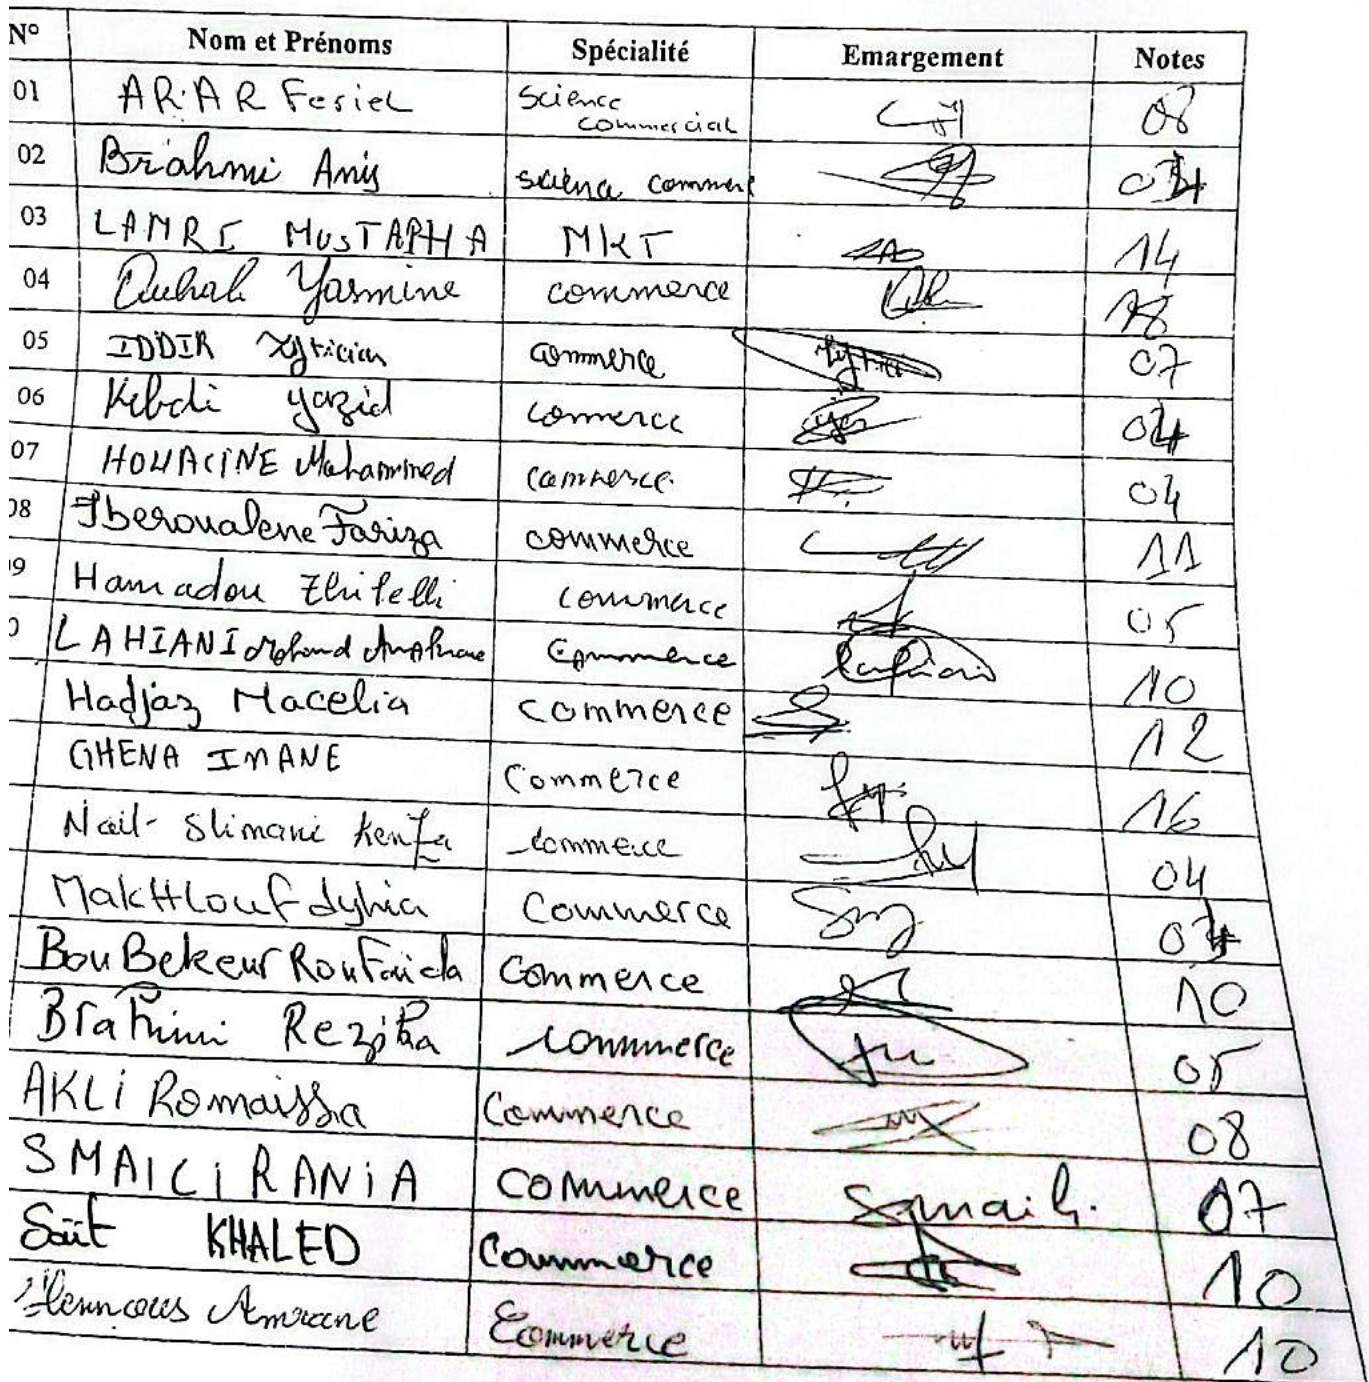 N° Nom et Prénoms Spécialité Emargement Notes
01 ARAR Feriel Science commercial 08
02 Brahmi Anis science commerc
03 LAMRI MUSTAPHA MKT 14
04 Ouhab Yasmine commerce 18
05 IDDIR commerce 07
06 Kebdi yazid commerce 04
07 HOUACINE Mohammed commerce 04
08 Iberoualene Fariza commerce 11
9 Hamadou Thilelli commerce 05
0 LAHIANI Mohand commerce 10
Hadjaz Macelia commerce 12
GHENA IMANE Commerce 16
Nait-Slimani Kenza commerce 04
MakHLouf dyhia Commerce
BouBekeur Roufaida Commerce 10
Brahimi Rezika commerce 05
AKLi Romaissa Commerce 08
SMAILi RANiA Commerce Smaili. 07
Sait KHALED Commerce 10
Amrane Commerce 10